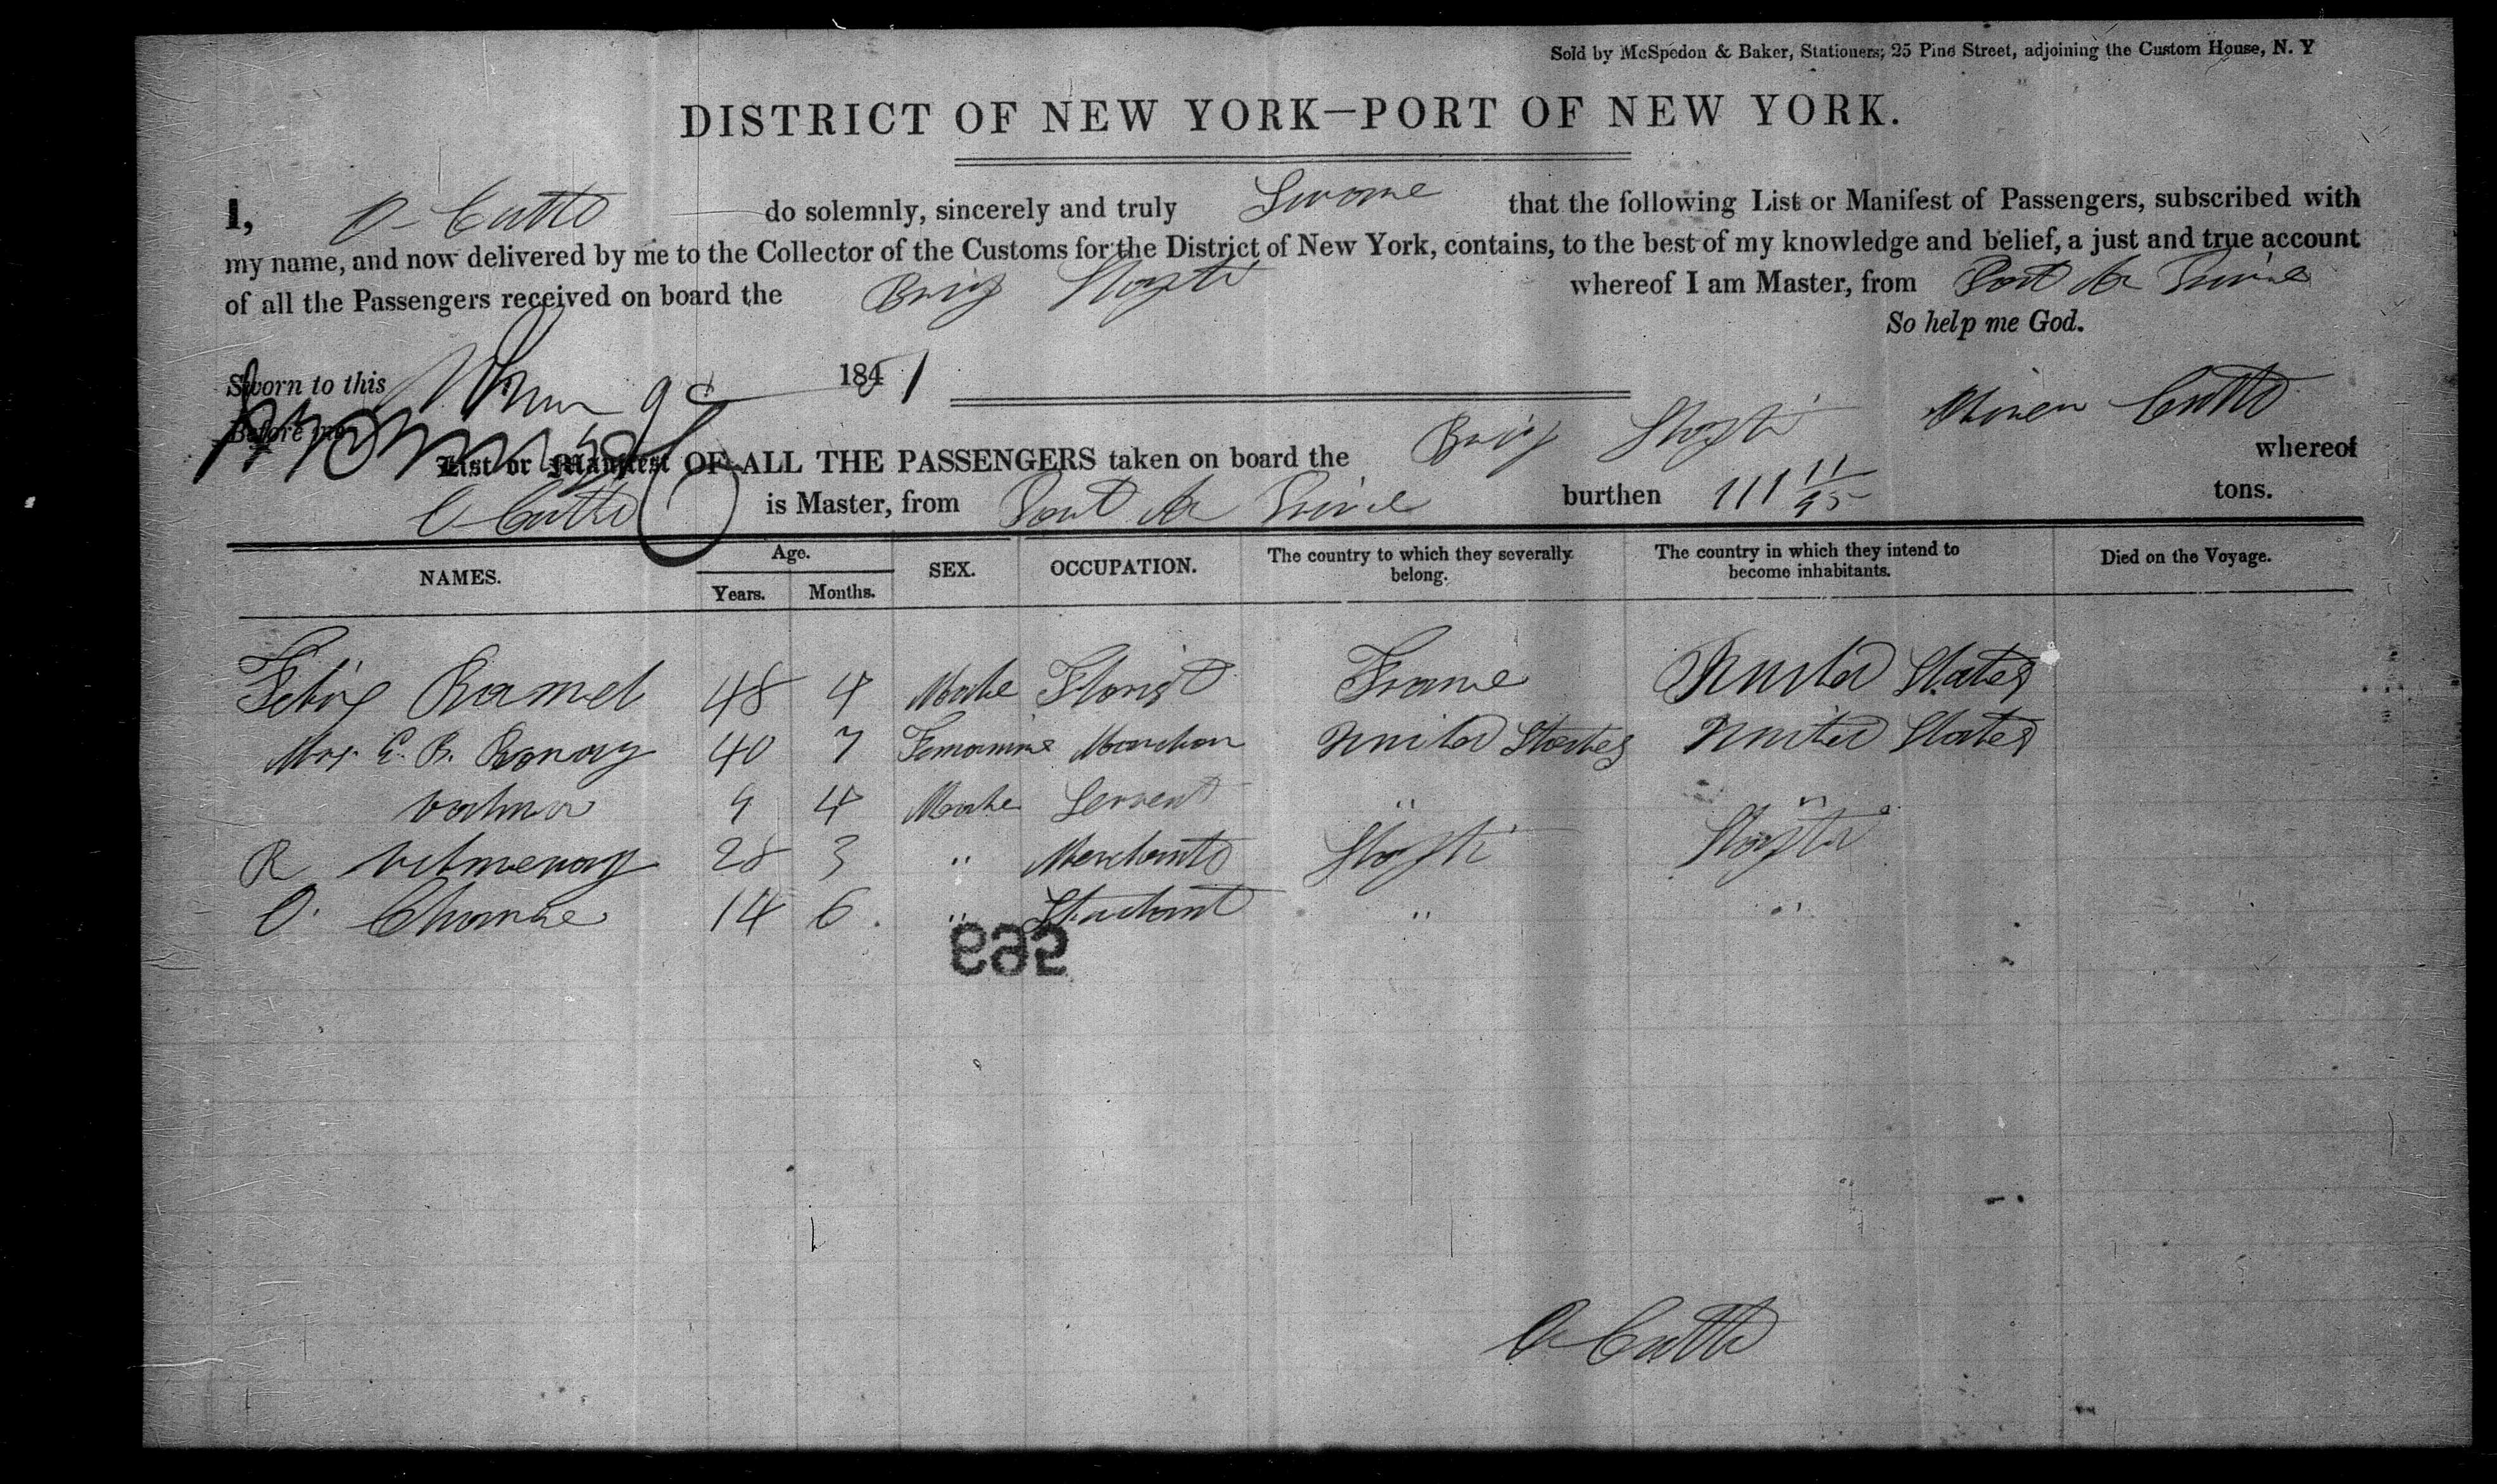 Sold by McSpedon & Baker, Stationers, 25 Pine Street, adjoining the Custom House, N. Y
DISTRICT OF NEW YORK—PORT OF NEW YORK.
I, O Cutts do solemnly, sincerely and truly Swome that the following List or Manifest of Passengers, subscribed with
my name, and now delivered by me to the Collector of the Customs for the District of New York, contains, to the best of my knowledge and belief, a just and true account
of all the Passengers received on board the Brig Hayti whereof I am Master, from Port Au Prince
So help me God.
Sworn to this 9 1851
Before me Cutts
List or Manifest OF ALL THE PASSENGERS taken on board the Brig Hayti whereof
O Cutts is Master, from Port Au Prince burthen 111 11/95 tons.
NAMES. Age. Years. Months. SEX. OCCUPATION. The country to which they severally belong. The country in which they intend to become inhabitants. Died on the Voyage.
Felix 48 4 Male Florist France United States
Mrs. E. B. 40 7 Femamine United States United States
9 4 Male Servent " "
R 28 3 " Merchants Hayti Hayti
O. 14 6 " " "
569
O Cutts